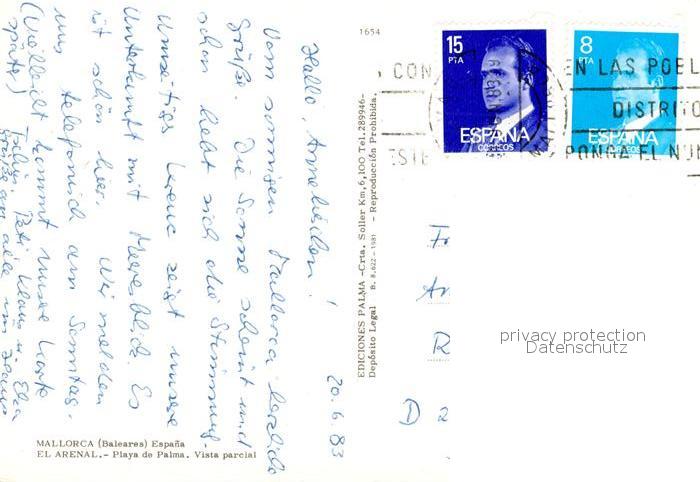 1654
15
PTA
ESPAÑA
CORREOS
8
PTA
ESPAÑA
CORREOS
CON
ESTE
EN LAS POBL
DISTRITO
PONGA EL NÚM
20.6.83
Hallo, Annelieschen!
Vom sonnigen Mallorca herzliche
Grüße. Die Sonne scheint und
schon hebt sich die Stimmung.
Umseitiges kreuz zeigt unsere
Unterkunft mit Meeresblick. Es
ist schön hier. Wir melden
uns telefonisch am Sonntag.
(Vielleicht kommt unsere Karte
später)
EDICIONES PALMA -Crta. Soller Km,6,100 Tel.289946-
Depósito Legal B. 8.622-1981 - Reproducción Prohibida.
Fr
An
R
D 2
privacy protection
Datenschutz
MALLORCA (Baleares) España
EL ARENAL.- Playa de Palma. Vista parcial